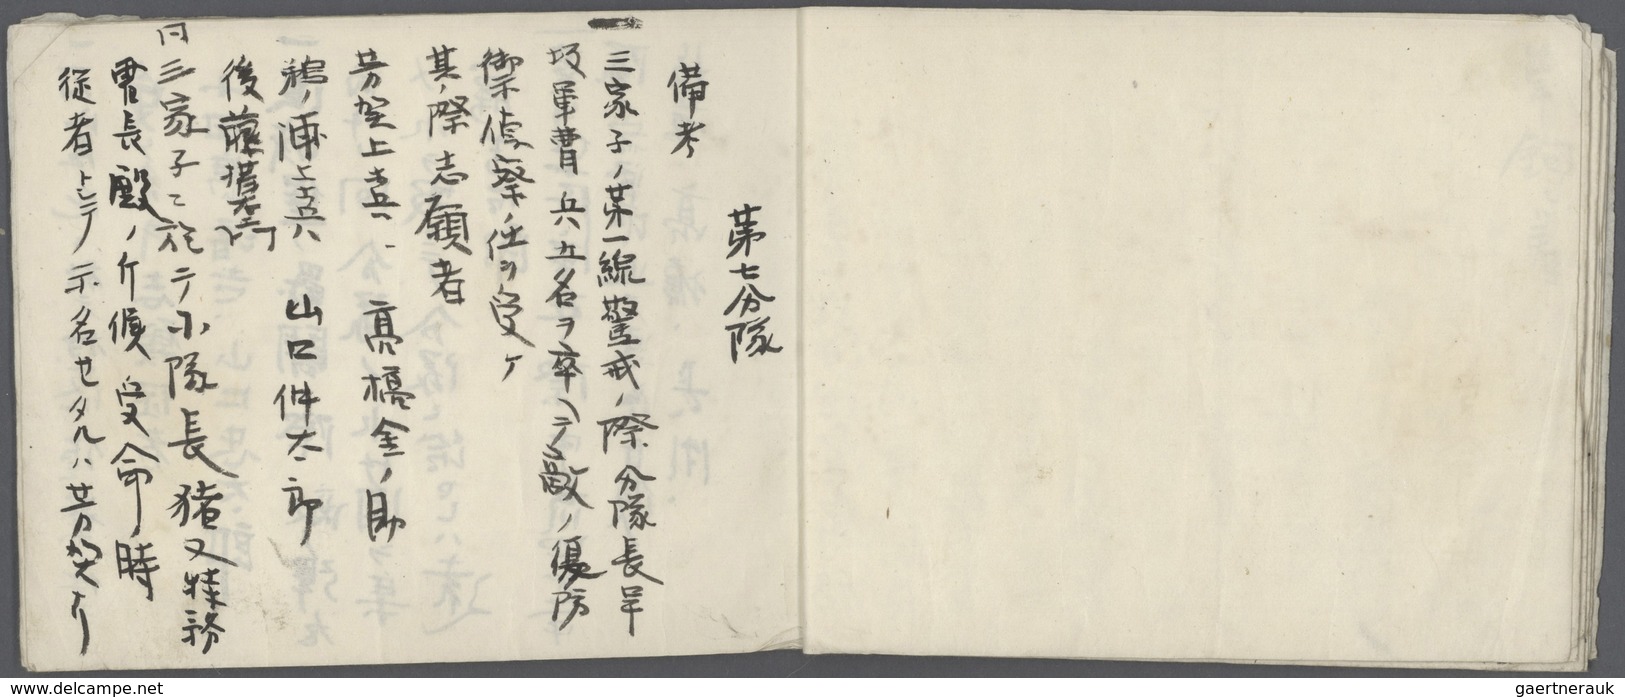 第七分隊
備考
一三家子ノ第一線警戒ノ際分隊長早
坂軍曹兵五名ヲ卒ヘテ敵ノ
偵察ノ任ヲ受ケ
其ノ際志願者
芳賀上喜八 高橋金ノ助
鵜ノ浦上喜八 山口仲太郎
後藤
同三家子ニ於テ小隊長猪又特務
曹長殿ノ斥候受命ノ時
従者トシテノ示名セタルハ芳賀ナリ
www.delcampe.net
gaertnerauk